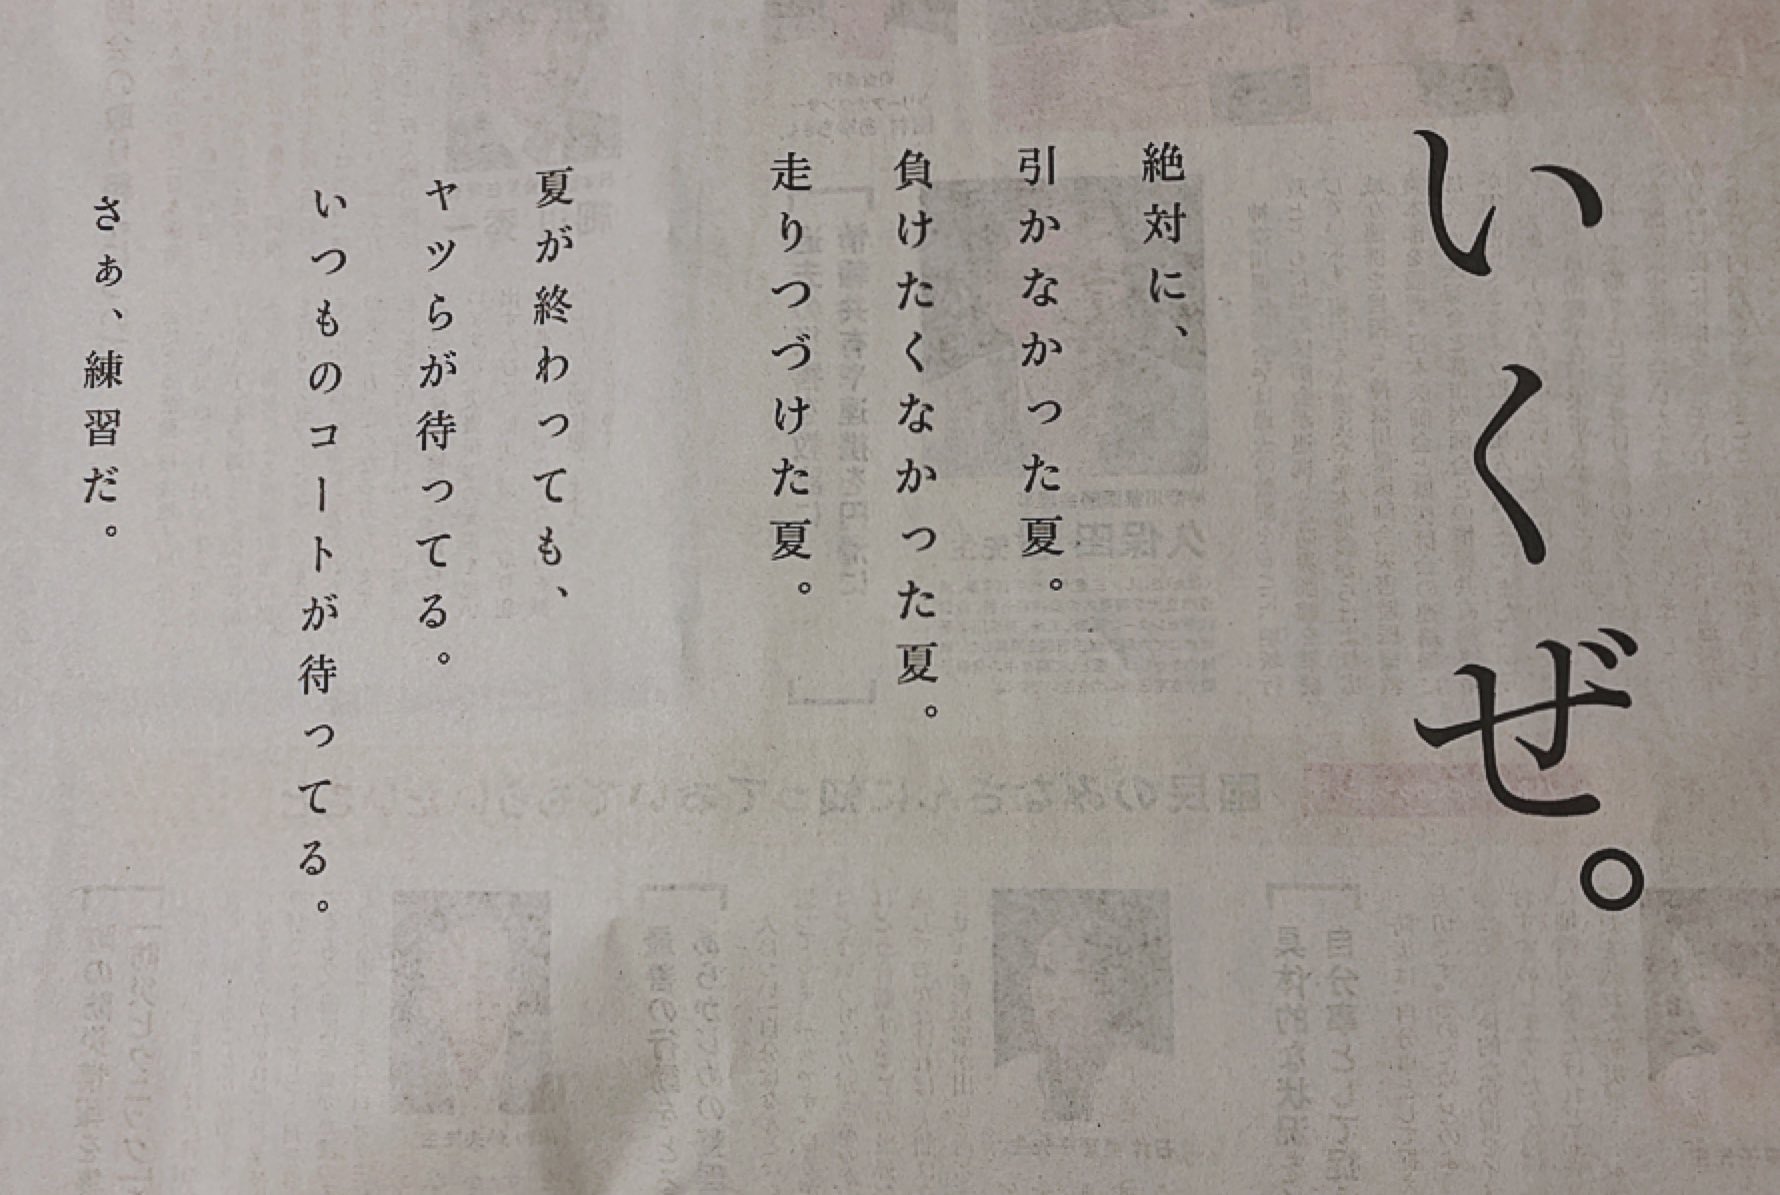 いくぜ。
絶対に、
引かなかった夏。
負けたくなかった夏。
走りつづけた夏。
夏が終わっても、
ヤツらが待ってる。
いつものコートが待ってる。
さぁ、練習だ。